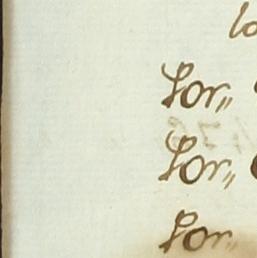 lo
Sor„
Sor„
Sor„